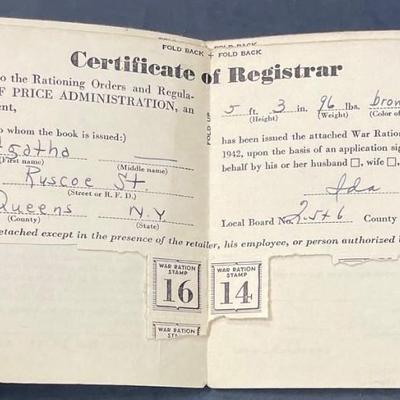 FOLD BACK + FOLD BACK
Certificate of Registrar
to the Rationing Orders and Regula-
F PRICE ADMINISTRATION, an
ent,
to whom the book is issued:)
Agatha
(First name) (Middle name)
Ruscoe St
(Street or R. F. D.)
Queens N.Y
(County) (State)
etached except in the presence of the retailer,
FOLD UP
5 ft. 3 in. 96 lbs. brow
(Height) (Weight) (Color of
has been issued the attached War Ration
1942, upon the basis of an application sig
behalf by his or her husband □, wife □,
Ida
Local Board No. County
his employee, or person authorized
WAR RATION
STAMP
16
WAR RATION
STAMP
14
WAR RATION
STAMP